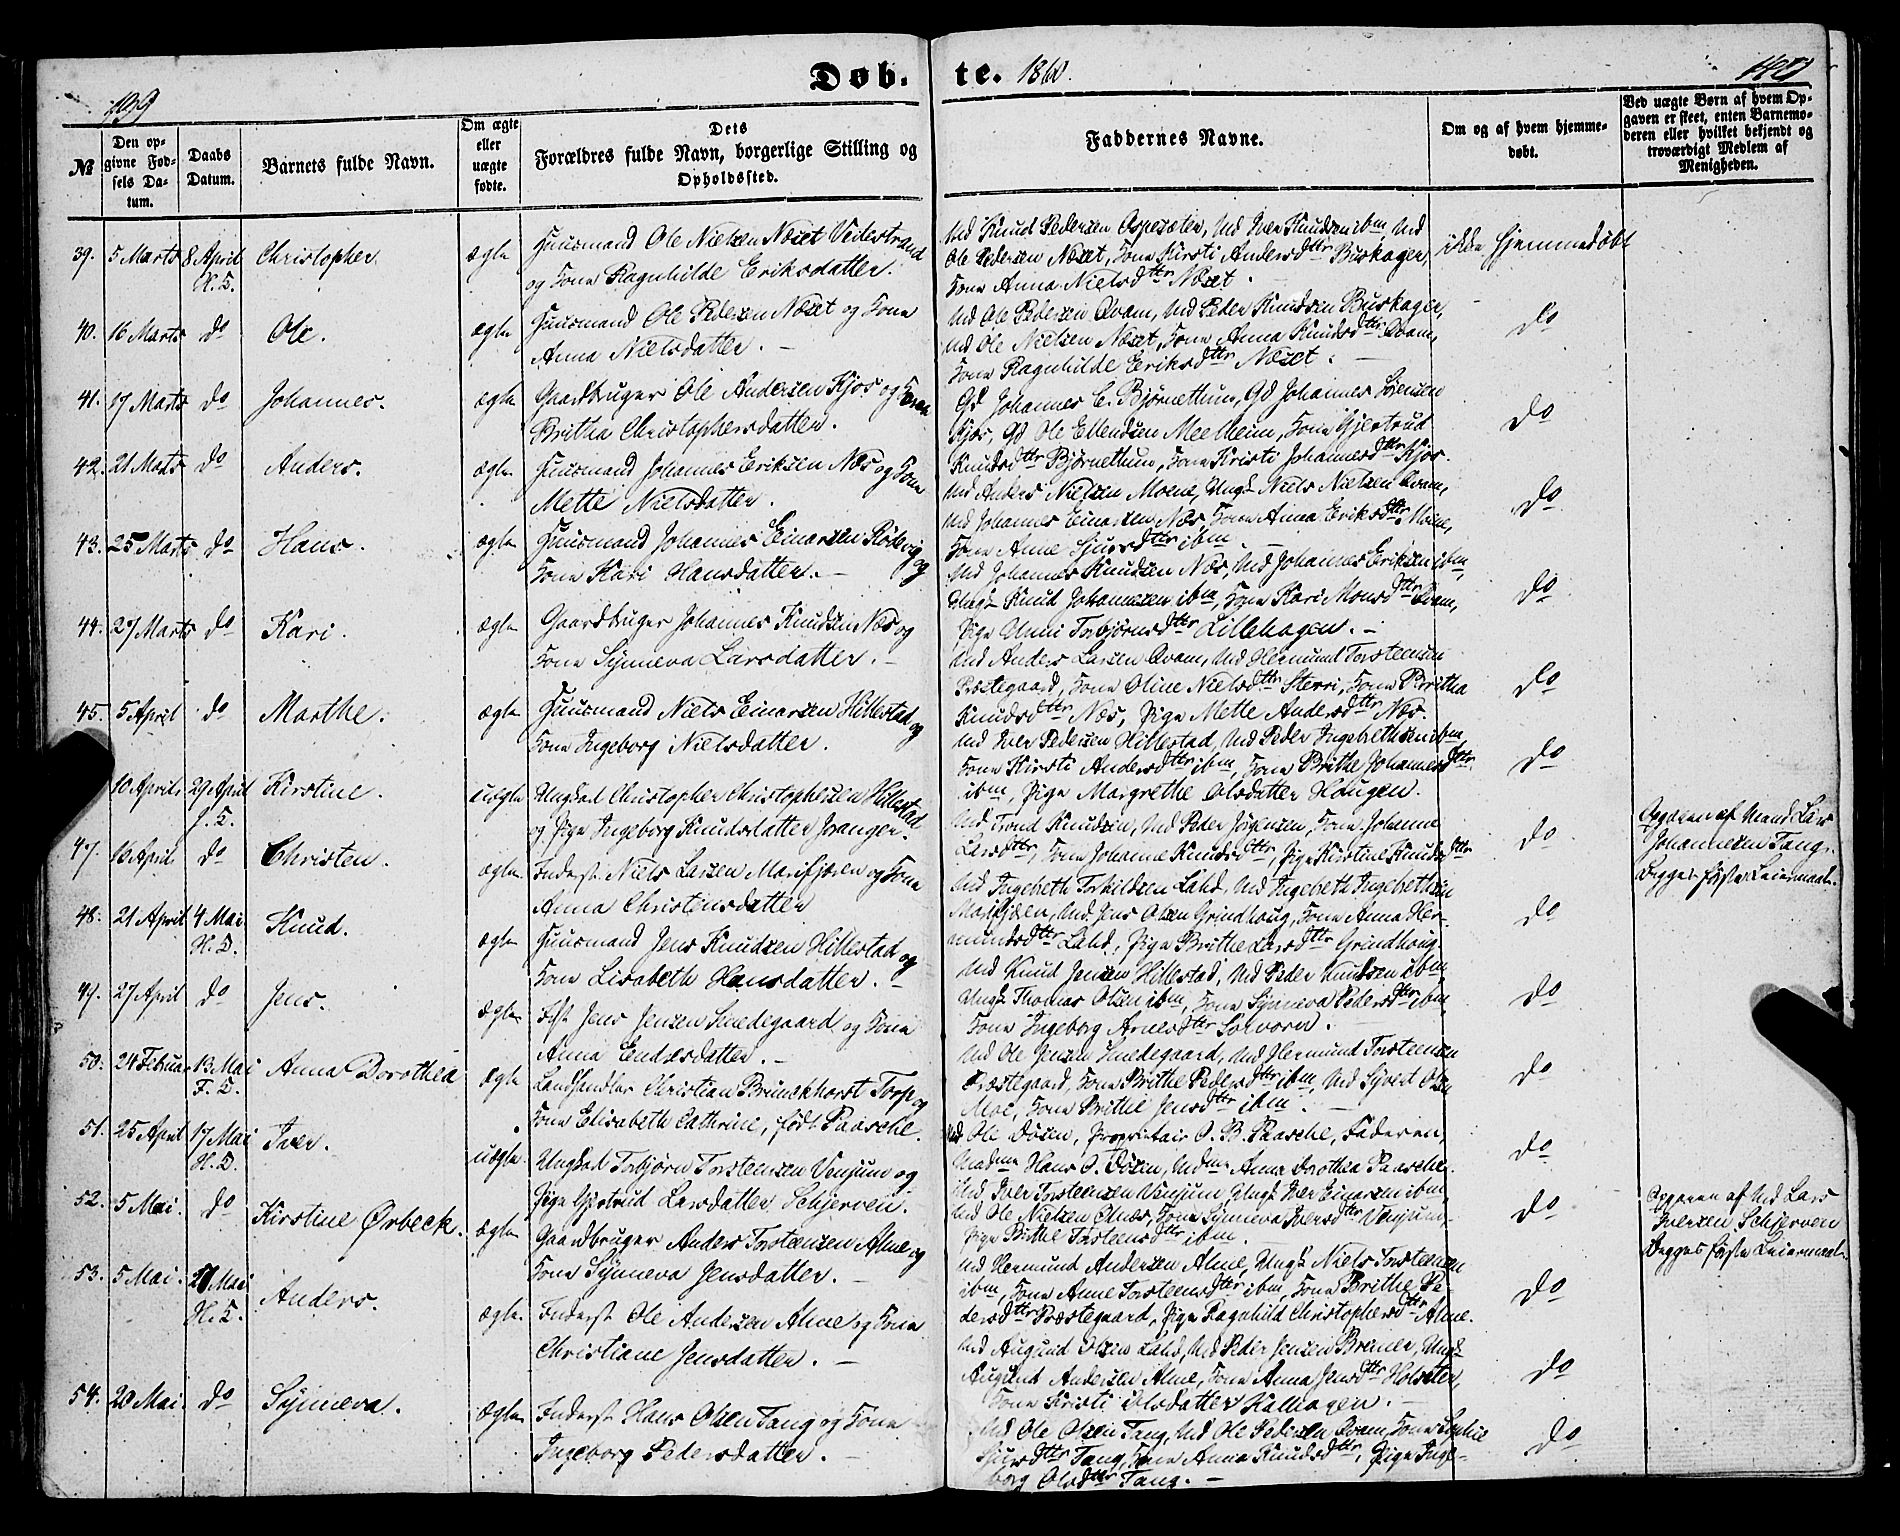 139
Døb.
te. 1860.
№
Den opgivne Fødsels Datum.
Daabs Datum.
Barnets fulde Navn.
Om ægte eller uægte fødte.
Dets Forældres fulde Navn, borgerlige Stilling og Opholdssted.
Faddernes Navne.
Om og af hvem hjemmedøbt.
Ved uægte Børn af hvem Opgaven er skeet, enten Barnemoderen eller hvilket bekjendt og troværdigt Medlem af Menigheden.
39. 5 Marts 8 April Christopher. ægte Huusmand Ole Nielsen Næset Veitestrand
og Kone Ragnhilde Eriksdatter.
Md Knud Pedersen Aspesæter, Md Iver Knudsen ibm, Md
Ole Pedersen Næset, Kone Kirsti Andersdttr Buskagen,
Kone Anna Nielsdttr Næset.
ikke hjemmedøbt
40. 16 Marts do Ole. ægte Huusmand Ole Pedersen Næset og Kone
Anna Nielsdatter. —
Md Ole Pedersen Qvam, Md Peder Knudsen Buskagen,
Md Ole Nielsen Næset, Kone Anna Knudsdttr Qvam,
Kone Ragnhilde Eriksdttr Næset.
do
41. 17 Marts do Johannes. ægte Gaardbruger Ole Andersen Kjos og Kone
Britha Christophersdatter.
Gd Johannes C. Bjørnethun, Gd Johannes Sørensen
Kjos, Gd Ole Ellendsen Meelheim, Kone Gjertrud
Knudsdttr Bjørnethun, Kone Kristi Johannesdttr Kjos.
do
42. 21 Marts do Anders. ægte Huusmand Johannes Eriksen Næs og Kone
Mette Nielsdatter.
Md Anders Nielsen Moene, Ungk Niels Nielsen Qvam,
Md Johannes Einarsen Næs, Kone Anna Eriksdttr Moene,
Kone Anne Sjursdttr ibm
do
43. 25 Marts do Hans. ægte Huusmand Johannes Einarsen Rødevig og
Kone Kari Hansdatter. —
Md Johannes Knudsen Næs, Md Johannes Eriksen ibm,
Ungk Knud Johannesen ibm, Kone Kari Monsdttr Qvam,
Pige Unni Torbjørnsdttr Lillehagen. —
do
44. 27 Marts do Kari. ægte Gaardbruger Johannes Knudsen Næs og
Kone Synneva Larsdatter. —
Md Anders Larsen Qvam, Md Hermund Torsteensen
Præstegaard, Kone Oline Nielsdttr Sterri, Kone Britha
Knudsdttr Næs, Pige Mette Andersdttr Næs.
do
45. 5 April do Marthe. ægte Huusmand Niels Einarsen Hillestad og
Kone Ingeborg Nielsdatter.
Md Iver Pedersen Hillestad, Md Peder Ingebrethsen ibm,
Kone Kirsti Andersdttr ibm, Kone Brithe Johannesdttr
ibm, Pige Margrethe Olsdatter Haugen.
do
10 April. 29 April Kirstine. uægte Ungkal Christopher Christophersen Hillestad
og Pige Ingeborg Knudsdatter Joranger.
Md Trond Knudsen, Md Peder Jørgensen, Kone Johanne
Larsdttr, Kone Johanne Knudsdttr, Pige Kirstine Knudsdttr
do
Opgaven af Mand Lars
Johannesen Tang.
Begges første Leiermaal.
47. 16 April. do Christen. ægte Inderst Niels Larsen Marifjæren og Kone
Anna Christensdatter
Md Ingebreth Torkildsen Lahd, Md Ingebreth Ingebrethsen
Marifjæren, Md Jens Olsen Grindhaug, Kone Anna Hermundsdttr Lahd, Pige Brithe Larsdttr Grindhoug.
do
48. 21 April 4 Mai Knud. ægte Huusmand Jens Knudsen Hillestad og
Kone Lisabeth Hansdatter. —
Md Knud Jensen Hillestad, Md Peder Knudsen ibm
Ungk Thomas Olsen ibm, Kone Synneva Pedersdttr ibm
Kone Ingeborg Arnesdttr Solvorn.
do
49. 27 April do Jens. ægte Jens Jensen Smedegaard og Kone
Anna Endresdatter. —
Md Ole Jensen Smedegaard, Md Hermund Torsteensen
Præstegaard, Kone Brithe Pedersdttr ibm, Md Syvert Olsen
Moe, Kone Brithe Jensdttr ibm.
do
50. 24 Februar 13 Mai Anna Dorothea ægte Landhandler Christian Brunckhorst Torp og
Kone Elisabeth Cathrine, født Paasche.
Md Ole Døsen, Proprietair O. B. Paasche, Faderen,
Madme Hans O. Døsen, Madme Anna Dorothea Paasche.
do
51. 25 April 17 Mai Iver. uægte Ungkal Torbjørn Torsteensen Venjum og
Pige Gjertrud Larsdatter Schjerven.
Md Iver Torsteensen Venjum, Ungk Iver Einarsen ibm,
Md Ole Nielsen Næs, Kone Synneva Iversdttr Venjum,
Pige Brithe Torsteensdttr ibm.
do
Opgaven af Md Lars
Iversen Schjerven
Begges første Leiermaal.
52. 5 Mai. do Kirstine Ørbeck. ægte Gaardbruger Anders Torsteensen Alme og
Kone Synneva Jensdatter. —
Md Hermund Andersen Alme, Ungk Niels Torsteensen
ibm, Kone Anne Torsteensdttr ibm, Kone Brithe Pedersdttr Præstegaard, Pige Ragnhild Christophersdttr Alme.
do
53. 5 Mai. 21 Mai Anders. ægte Inderst Ole Andersen Alme og Kone
Christiane Jensdatter. —
Md Augund Olsen Lahd, Md Peder Jensen Bremer, Ungk
Augund Andersen Alme, Kone Anna Jensdttr Holsæter,
Kone Kristi Olsdatter Kalhagen.
do
54. 20 Mai. do Synneva. ægte Inderst Hans Olsen Tang og Kone
Ingeborg Pedersdatter. —
Md Ole Olsen Tang, Md Ole Pedersen Qvam, Kone Sophie
Sjursdttr Tang, Kone Anna Knudsdttr, Pige Ingeborg Olsdttr Tang. —
do